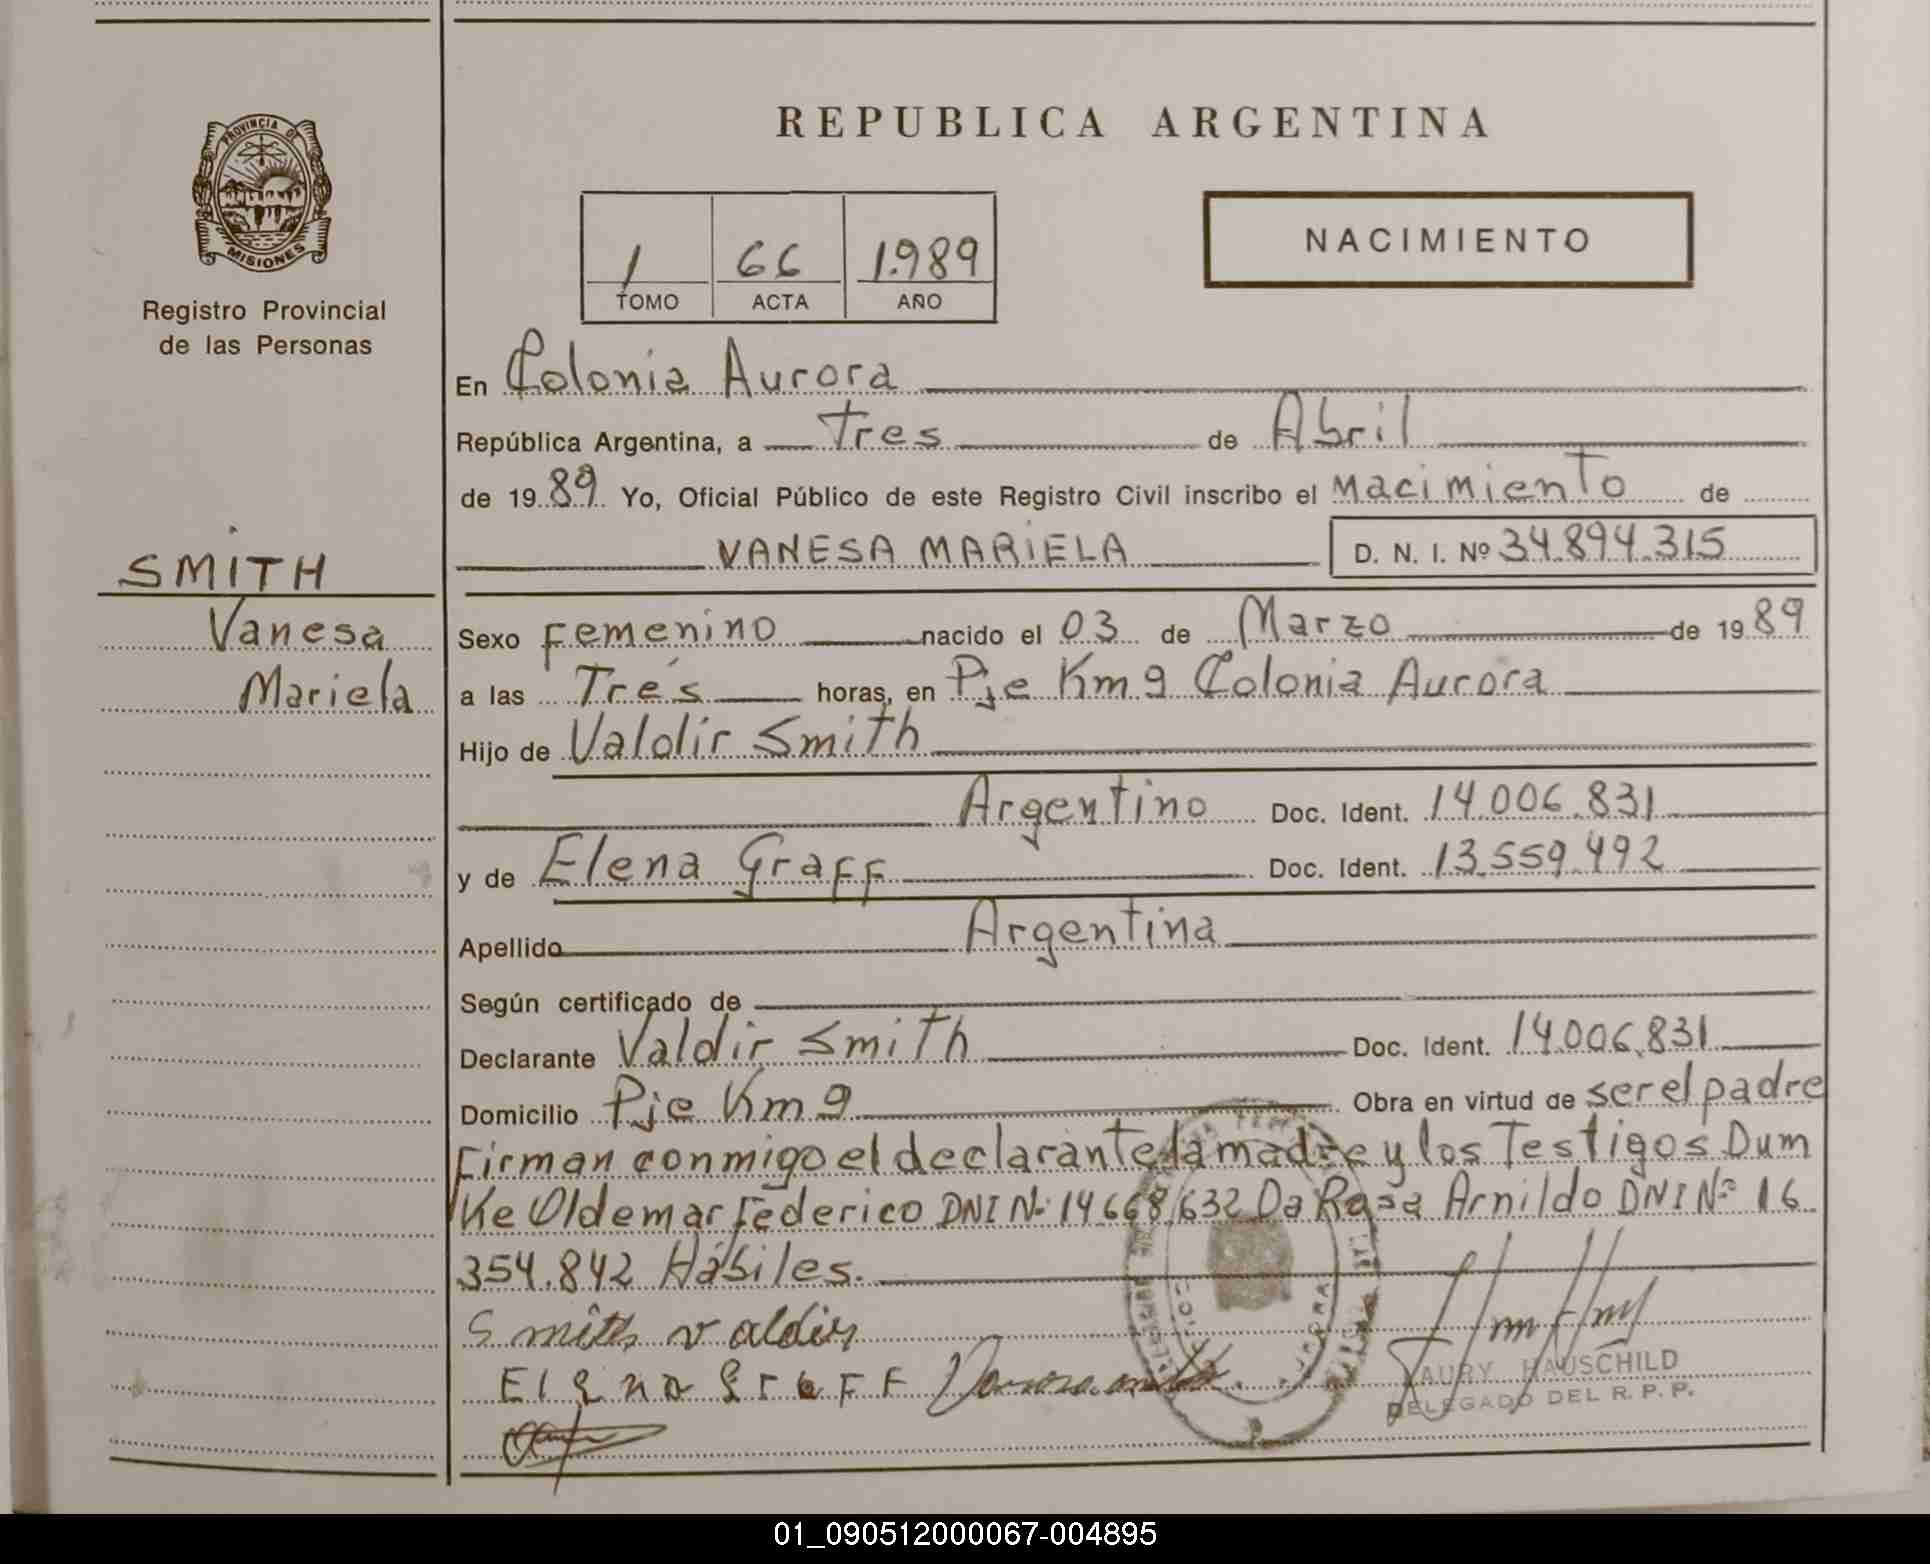 REPUBLICA ARGENTINA
PROVINCIA DE
MISIONES
Registro Provincial
de las Personas
1 66 1.989
TOMO ACTA AÑO
NACIMIENTO
En Colonia Aurora
República Argentina, a Tres de Abril
de 1989 Yo, Oficial Público de este Registro Civil inscribo el Nacimiento de
VANESA MARIELA D. N. I. Nº 34.894.315
SMITH
Vanesa
Mariela
Sexo Femenino nacido el 03 de Marzo de 1989
a las Tres horas, en Pje Km 9 Colonia Aurora
Hijo de Valdir Smith
Argentino Doc. Ident. 14.006.831
y de Elena Graff Doc. Ident. 13.559.492
Apellido Argentina
Según certificado de
Declarante Valdir Smith Doc. Ident. 14.006.831
Domicilio Pje Km 9 Obra en virtud de ser el padre
Firman conmigo el declarante la madre y los Testigos Dum
Ke Oldemar Federico DNI Nº 14.668.632 Da Rosa Arnildo DNI Nº 16.
354.842 Hábiles.
Smith valdir
Elena Graff
TAURY HAUSCHILD
DELEGADO DEL R. P. P.
01_090512000067-004895